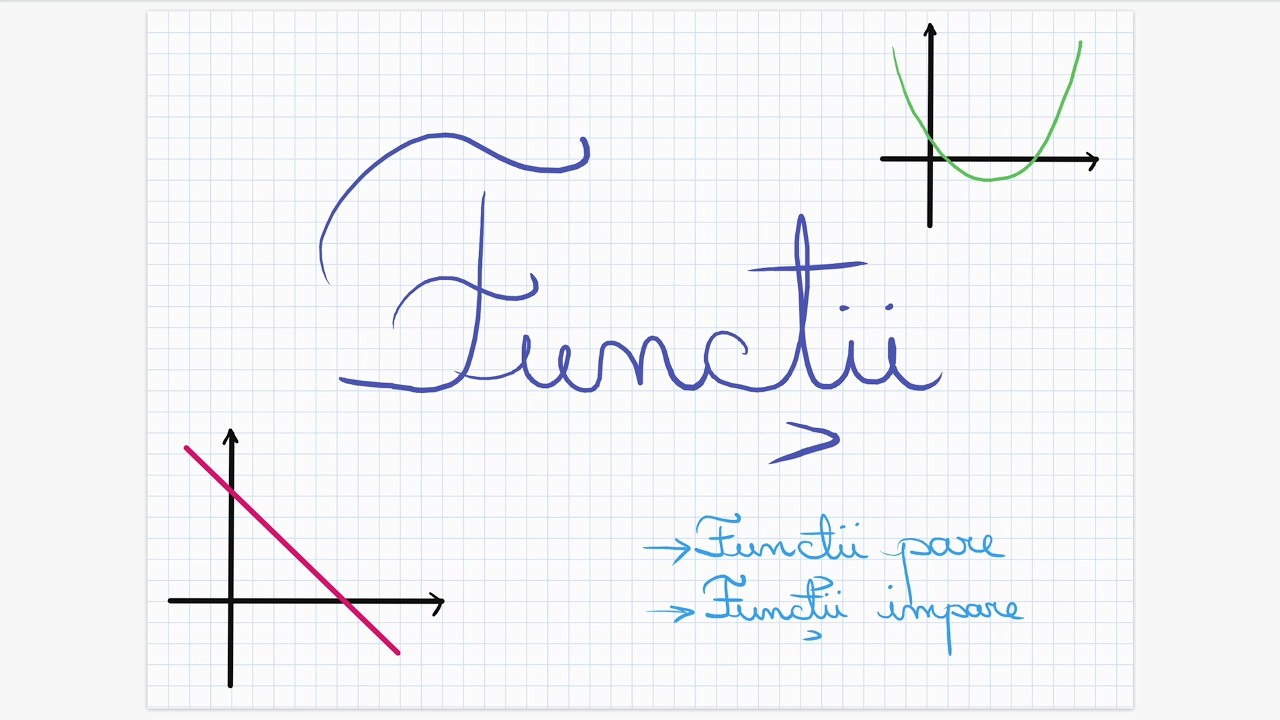 Funcții
→ Funcții pare
→ Funcții impare